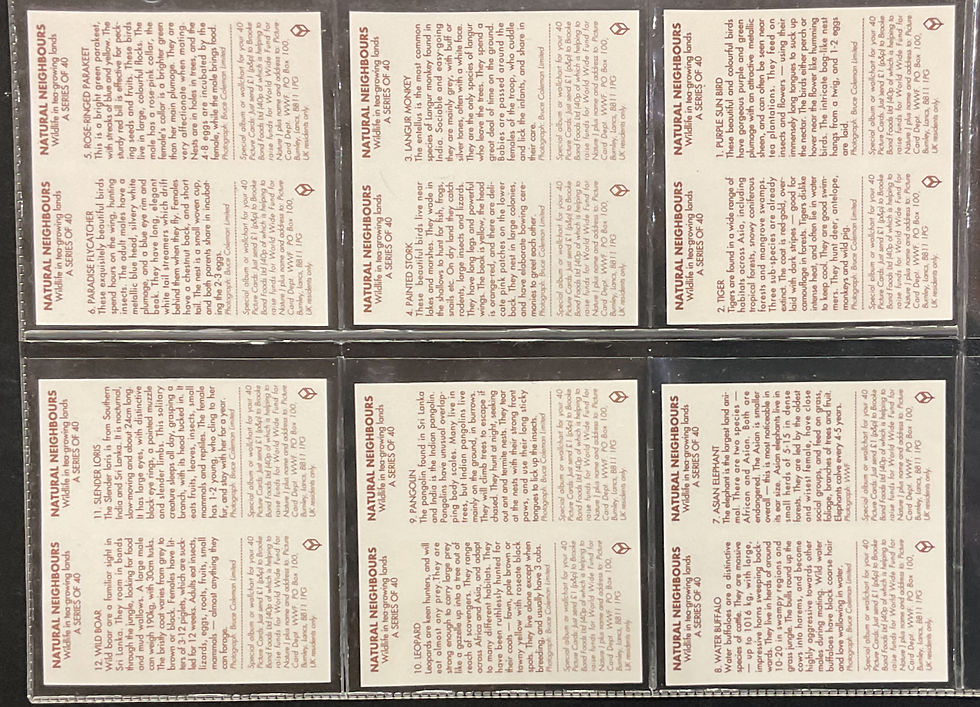 NATURAL NEIGHBOURS
Wildlife in tea-growing lands
A SERIES OF 40
12. WILD BOAR
Wild boar are a familiar sight in
Sri Lanka. They roam in bands
through the jungle, looking for food
and mud wallows. A large male
can weigh 190kg, with 30cm tusks.
The bristly coat varies from grey to
brown or black. Females have lit-
ters of 3-12 piglets, which are suck-
led for 12 weeks. Adults eat insects,
lizards, eggs, roots, fruits, small
mammals — almost anything they
can forage.
Photograph: Bruce Coleman Limited
Special album or wallchart for your 40
Picture Cards Just send £1 (p&p) to Brooke
Bond Foods Ltd (40p of which is helping to
raise funds for World Wide Fund for
Nature ) plus name and address to: Picture
Card Dept. WWF. PO Box 100,
Burnley, Lancs, BB11 1PG
UK residents only.
NATURAL NEIGHBOURS
Wildlife in tea-growing lands
A SERIES OF 40
11. SLENDER LORIS
The Slender Loris is from Southern
India and Sri Lanka. It is nocturnal,
slow moving and about 24cm long.
It has large eyes, with distinctive
black eye rings, a pointed muzzle
and slender limbs. This solitary
creature sleeps all day, grasping a
branch, its head tucked in. It
eats fruits, leaves, insects, small
mammals and reptiles. The female
has 1-2 young, which cling to her
fur, and stay with her for a year.
Photograph: Bruce Coleman Limited
Special album or wallchart for your 40
Picture Cards Just send £1 (p&p) to Brooke
Bond Foods Ltd (40p of which is helping to
raise funds for World Wide Fund for
Nature ) plus name and address to: Picture
Card Dept. WWF. PO Box 100,
Burnley, Lancs, BB11 1PG
UK residents only.
NATURAL NEIGHBOURS
Wildlife in tea-growing lands
A SERIES OF 40
6. PARADISE FLYCATCHER
These exquisitely beautiful birds
spend hours on the wing, hunting
insects. The adult males have a
metallic blue head, silvery white
plumage, and a blue eye rim and
beak. They have long elegant
white tail streamers which drift
behind them when they fly. Females
have a chestnut back and short
tail. The nest is a small woven cup,
and both parents share in incubat-
ing the 2-3 eggs.
Photograph: Bruce Coleman Limited
Special album or wallchart for your 40
Picture Cards Just send £1 (p&p) to Brooke
Bond Foods Ltd (40p of which is helping to
raise funds for World Wide Fund for
Nature ) plus name and address to: Picture
Card Dept. WWF. PO Box 100,
Burnley, Lancs, BB11 1PG
UK residents only.
NATURAL NEIGHBOURS
Wildlife in tea-growing lands
A SERIES OF 40
5. ROSE-RINGED PARAKEET
This is a bright green parakeet,
with streaks of blue and yellow. The
sturdy red bill is effective for pick-
ing seeds and fruits. These birds
live in large, colourful flocks. The
male has a rose-pink collar, the
female's collar is a brighter green
than her main plumage. They are
very affectionate when mating.
Nests are in holes in trees, and the
4-8 eggs are incubated by the
female, while the male brings food.
Photograph: Bruce Coleman Limited
Special album or wallchart for your 40
Picture Cards Just send £1 (p&p) to Brooke
Bond Foods Ltd (40p of which is helping to
raise funds for World Wide Fund for
Nature ) plus name and address to: Picture
Card Dept. WWF. PO Box 100,
Burnley, Lancs, BB11 1PG
UK residents only.
NATURAL NEIGHBOURS
Wildlife in tea-growing lands
A SERIES OF 40
10. LEOPARD
Leopards are keen hunters, and will
eat almost any prey. They are
strong enough to carry large prey
like a gazelle up into a tree out of
reach of scavengers. They range
across Africa and Asia, and adapt
to many different habitats. They
have been ruthlessly hunted for
their coats — fawn, pale brown or
tawny yellow with roseate black
spots. They live alone except when
breeding, and usually have 3 cubs.
Photograph: Bruce Coleman Limited
Special album or wallchart for your 40
Picture Cards Just send £1 (p&p) to Brooke
Bond Foods Ltd (40p of which is helping to
raise funds for World Wide Fund for
Nature ) plus name and address to: Picture
Card Dept. WWF. PO Box 100,
Burnley, Lancs, BB11 1PG
UK residents only.
NATURAL NEIGHBOURS
Wildlife in tea-growing lands
A SERIES OF 40
9. PANGOLIN
The pangolin found in Sri Lanka
and India is the Indian pangolin.
Pangolins have unusual overlap-
ping body scales. Many live in
trees, but Indian pangolins live
mainly on the ground, in burrows.
They will climb trees to escape if
chased. They hunt at night, seeking
out ant and termite nests. They tear
at the nests with their strong front
paws, and use their long sticky
tongues to lick up the insects.
Photograph: Bruce Coleman Limited
Special album or wallchart for your 40
Picture Cards Just send £1 (p&p) to Brooke
Bond Foods Ltd (40p of which is helping to
raise funds for World Wide Fund for
Nature ) plus name and address to: Picture
Card Dept. WWF. PO Box 100,
Burnley, Lancs, BB11 1PG
UK residents only.
NATURAL NEIGHBOURS
Wildlife in tea-growing lands
A SERIES OF 40
4. PAINTED STORK
These beautiful birds live near
lakes and marshes. They wade in
the shallows to hunt for fish, frogs,
snails etc. On dry land they catch
rodents, large insects and lizards.
They have long legs and powerful
wings. The beak is yellow, the head
is orange-red, and there are deli-
cate pink patches on the lower
back. They nest in large colonies,
and have elaborate bowing cere-
monies to greet each other.
Photograph: Bruce Coleman Limited
Special album or wallchart for your 40
Picture Cards Just send £1 (p&p) to Brooke
Bond Foods Ltd (40p of which is helping to
raise funds for World Wide Fund for
Nature ) plus name and address to: Picture
Card Dept. WWF. PO Box 100,
Burnley, Lancs, BB11 1PG
UK residents only.
NATURAL NEIGHBOURS
Wildlife in tea-growing lands
A SERIES OF 40
3. LANGUR MONKEY
The entellus is the most common
species of Langur monkey found in
India. Sociable and easygoing,
they are grey or brown with buff or
silver tones, often with a white face.
They are the only species of langur
who leave the trees. They spend a
great deal of time on the ground.
Babies are passed around the
females of the troop, who cuddle
and lick the infants, and share in
their care.
Photograph: Bruce Coleman Limited
Special album or wallchart for your 40
Picture Cards Just send £1 (p&p) to Brooke
Bond Foods Ltd (40p of which is helping to
raise funds for World Wide Fund for
Nature ) plus name and address to: Picture
Card Dept. WWF. PO Box 100,
Burnley, Lancs, BB11 1PG
UK residents only.
NATURAL NEIGHBOURS
Wildlife in tea-growing lands
A SERIES OF 40
8. WATER BUFFALO
Water buffaloes are a distinctive
species of cattle. They are massive
— up to 1016 kg, with large,
impressive horns sweeping back-
wards. They live in herds of around
10-20 in swampy regions and
grass jungle. The bulls round up the
cows in the evening, and become
highly aggressive towards other
males during mating. Wild water
buffaloes have black coarse hair
and love wallowing in water.
Photograph: WWF
Special album or wallchart for your 40
Picture Cards Just send £1 (p&p) to Brooke
Bond Foods Ltd (40p of which is helping to
raise funds for World Wide Fund for
Nature ) plus name and address to: Picture
Card Dept. WWF. PO Box 100,
Burnley, Lancs, BB11 1PG
UK residents only.
NATURAL NEIGHBOURS
Wildlife in tea-growing lands
A SERIES OF 40
7. ASIAN ELEPHANT
The elephant is the largest land ani-
mal. There are two species —
African and Asian. Both are
endangered. The Asian is smaller
overall — this is most noticeable in
its ear size. Asian elephants live in
small herds of 5-15 in dense
forests. They are led by the oldest
and wisest female, have close
social groups, and feed on grass,
foliage, branches of trees and fruit.
Elephants calve every 4-5 years.
Photograph: WWF
Special album or wallchart for your 40
Picture Cards Just send £1 (p&p) to Brooke
Bond Foods Ltd (40p of which is helping to
raise funds for World Wide Fund for
Nature ) plus name and address to: Picture
Card Dept. WWF. PO Box 100,
Burnley, Lancs, BB11 1PG
UK residents only.
NATURAL NEIGHBOURS
Wildlife in tea-growing lands
A SERIES OF 40
2. TIGER
Tigers are found in a wide range of
habitats across Asia, including
tropical forests, snowy coniferous
forests and mangrove swamps.
Three sub-species are already
extinct. The coat is red-gold, over-
laid with dark stripes — good for
camouflage in forests. Tigers dislike
intense heat, and often lie in water
to keep cool. They are good swim-
mers. They hunt deer, antelope,
monkeys and wild pig.
Photograph: Bruce Coleman Limited
Special album or wallchart for your 40
Picture Cards Just send £1 (p&p) to Brooke
Bond Foods Ltd (40p of which is helping to
raise funds for World Wide Fund for
Nature ) plus name and address to: Picture
Card Dept. WWF. PO Box 100,
Burnley, Lancs, BB11 1PG
UK residents only.
NATURAL NEIGHBOURS
Wildlife in tea-growing lands
A SERIES OF 40
1. PURPLE SUN BIRD
These beautiful, colourful birds
have gorgeous purple and green
plumage with an attractive metallic
sheen, and can often be seen near
tea plantations. They feed on
insects and flowers — using their
immensely long tongues to suck up
the nectar. The birds either perch or
hover by the flower like humming
birds. The intricate bag-like nest
hangs from a twig, and 1-2 eggs
are laid.
Photograph: Bruce Coleman Limited
Special album or wallchart for your 40
Picture Cards Just send £1 (p&p) to Brooke
Bond Foods Ltd (40p of which is helping to
raise funds for World Wide Fund for
Nature ) plus name and address to: Picture
Card Dept. WWF. PO Box 100,
Burnley, Lancs, BB11 1PG
UK residents only.